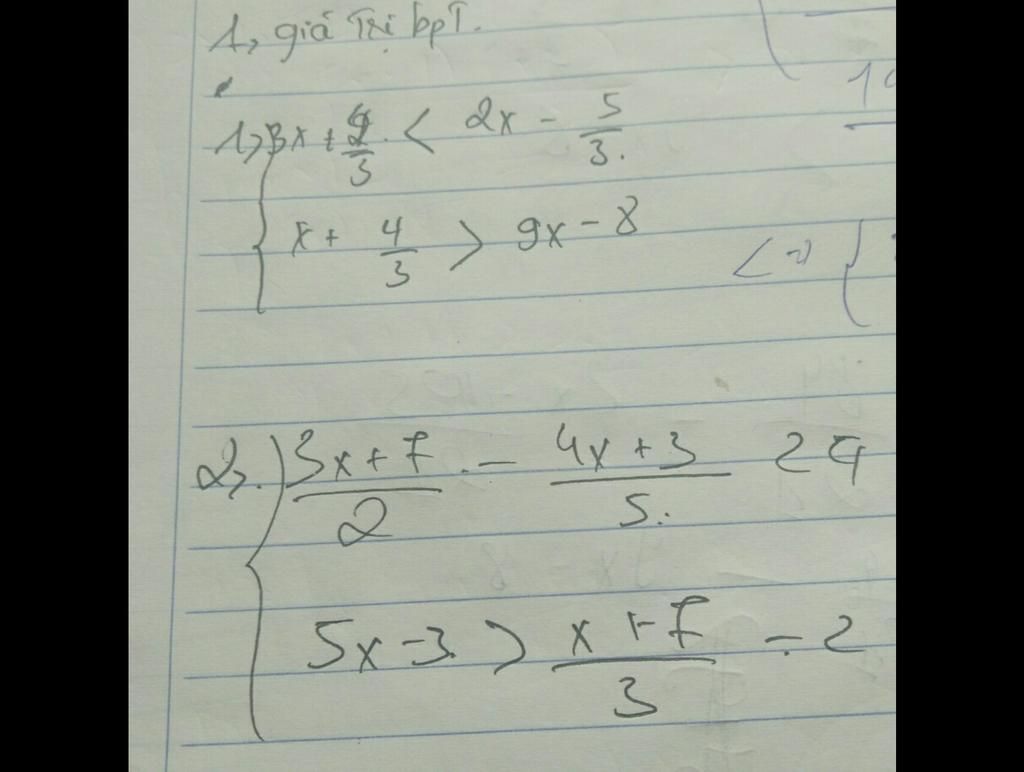 1, giá Trị bpT.
1, { 3x + 4/3 < 2x - 5/3.
x + 4/3 > 9x - 8
<=> {
2, { (3x + 7)/2 - (4x + 3)/5. 2
5x - 3 > (x + 7)/3 - 2